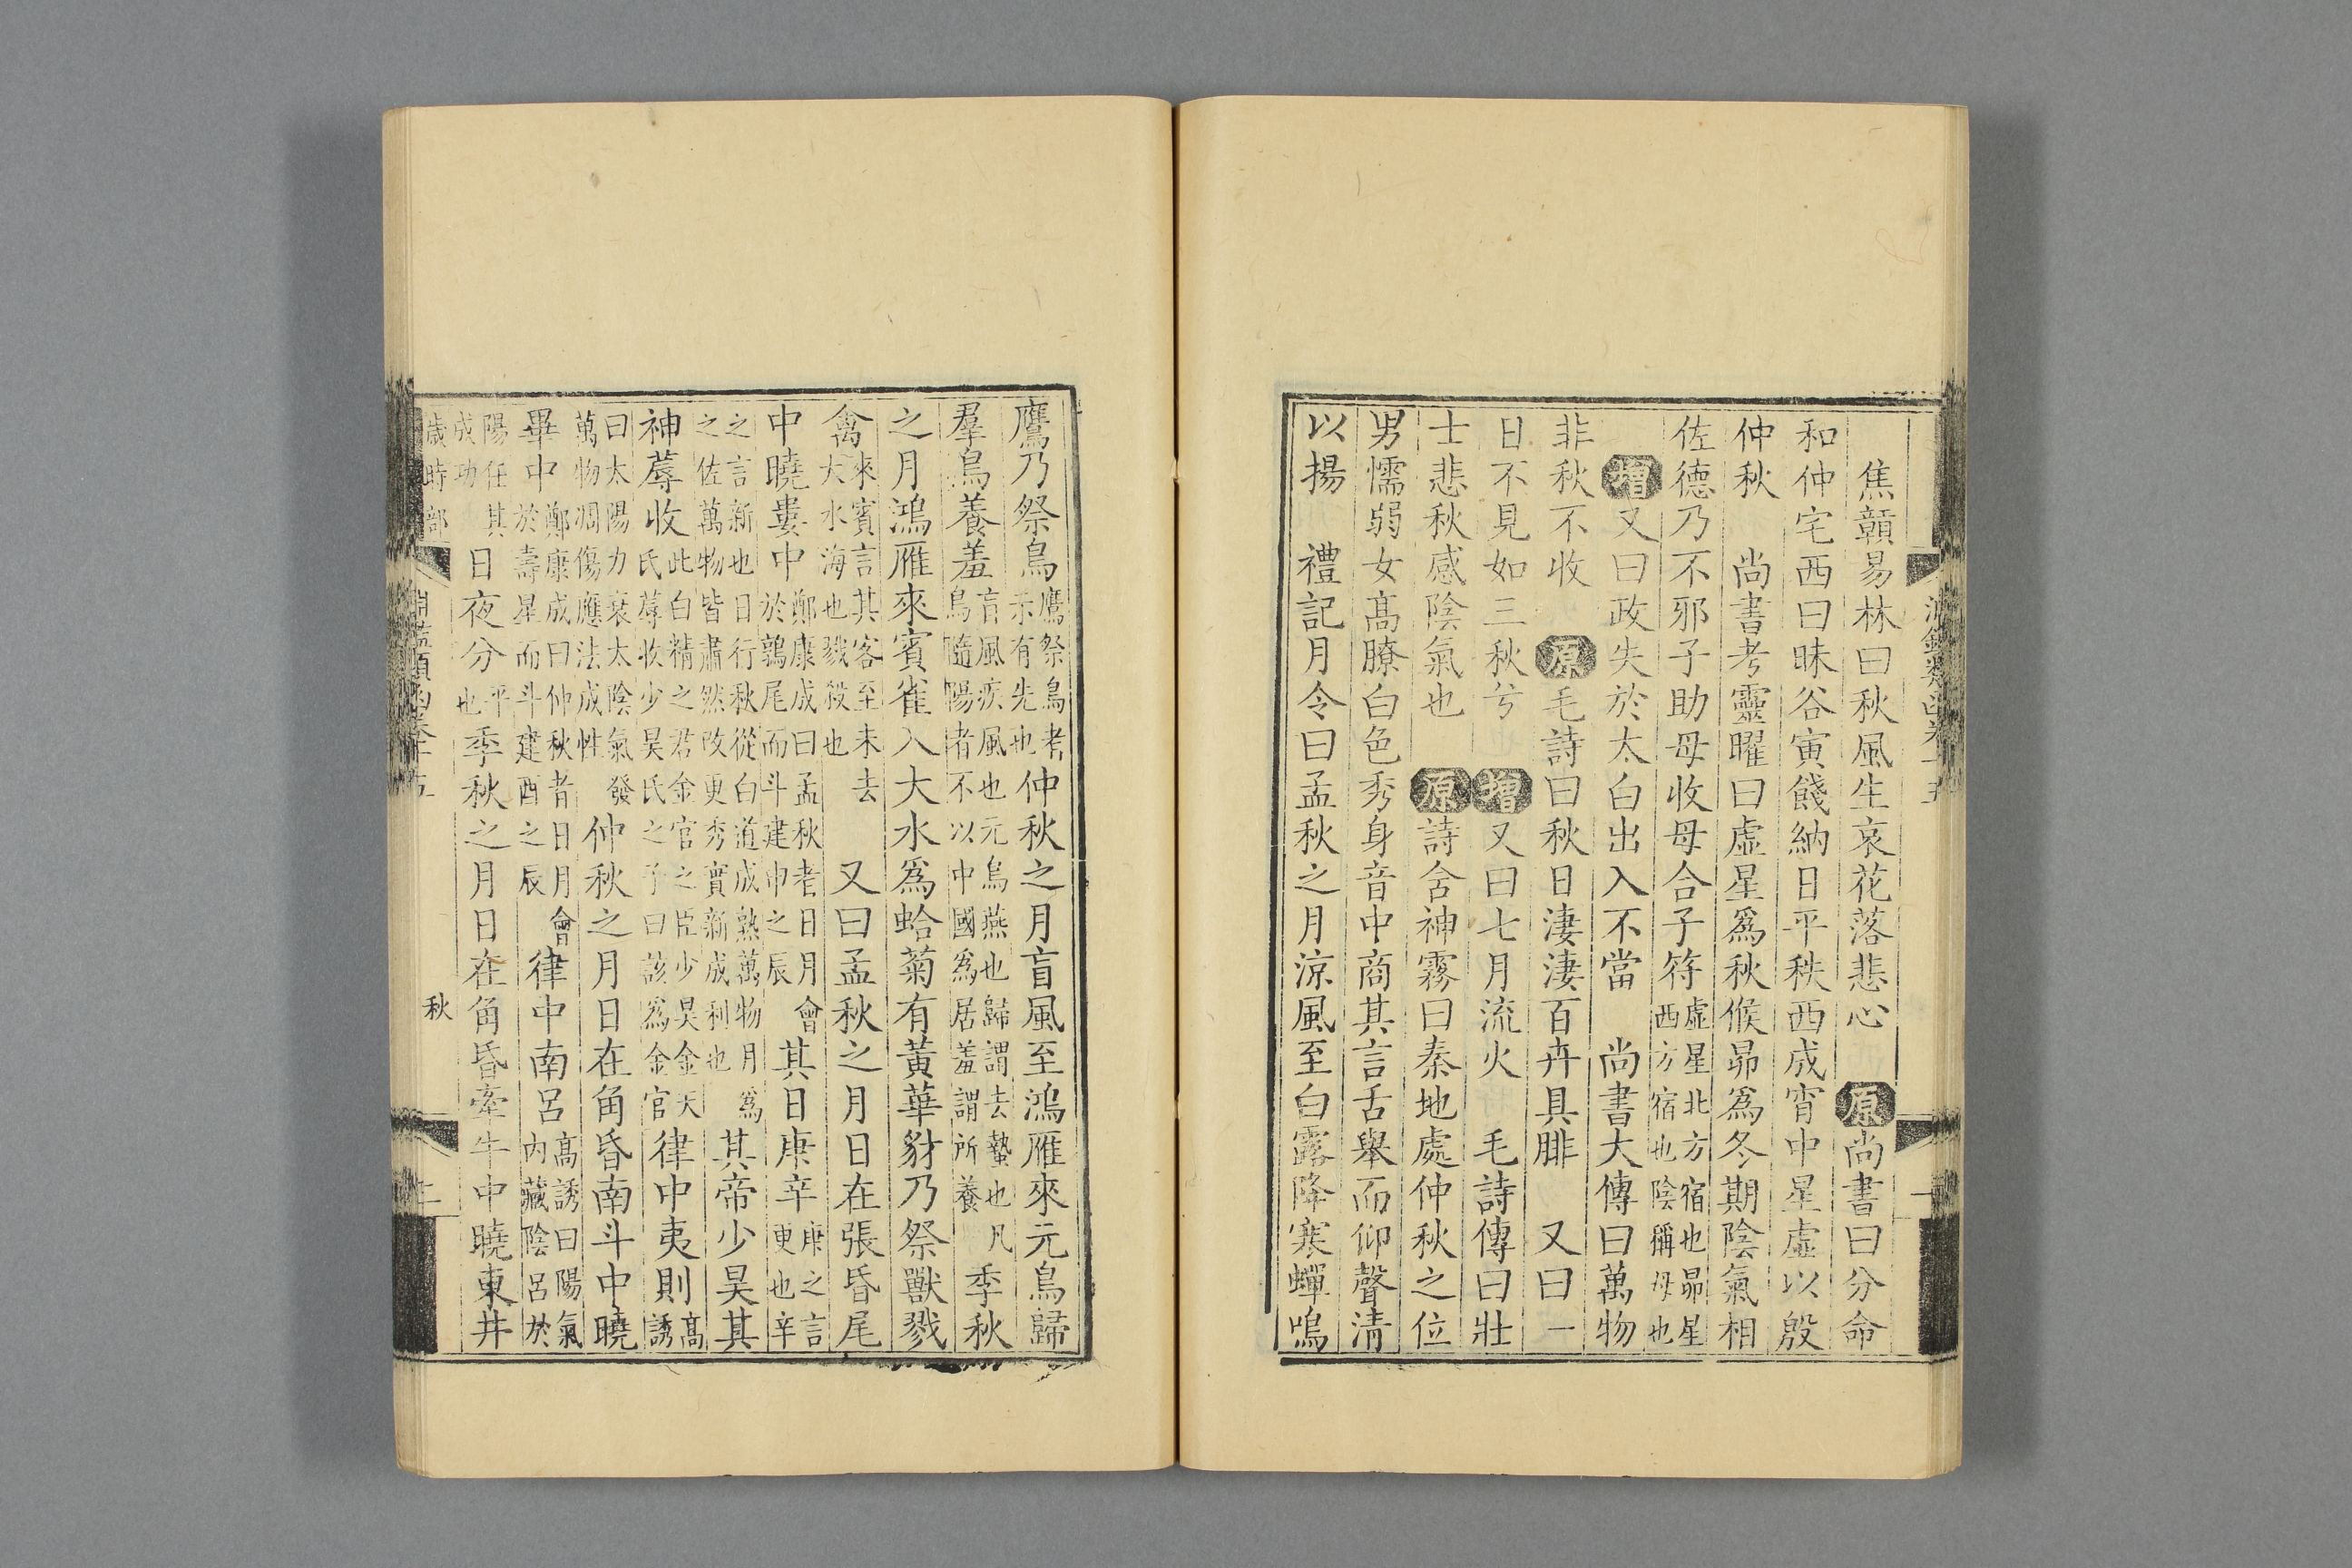 淵鑑類函卷十五
一
焦贛易林曰秋風生哀花落悲心　原尚書曰分命
和仲宅西曰昧谷寅餞納日平秩西成宵中星虛以殷
仲秋　尚書考靈曜曰虛星爲秋候昴爲冬期陰氣相
佐德乃不邪子助母收母合子符虛星北方宿也昴星西方宿也陰稱母也
增又曰政失於太白出入不當　尚書大傳曰萬物
非秋不收　原毛詩曰秋日淒淒百卉具腓　又曰一
日不見如三秋兮　增又曰七月流火　毛詩傳曰壯
士悲秋感陰氣也　原詩含神霧曰秦地處仲秋之位
男懦弱女高膫白色秀身音中商其言舌舉而仰聲清
以揚　禮記月令曰孟秋之月涼風至白露降寒蟬鳴
鷹乃祭鳥鷹祭鳥者示有先也仲秋之月盲風至鴻雁來元鳥歸
羣鳥養羞盲風疾風也元鳥燕也歸謂去蟄也凡鳥隨陽者不以中國爲居羞謂所養季秋
之月鴻雁來賓雀入大水爲蛤菊有黃華豺乃祭獸戮
禽來賓言其客至未去大水海也戮殺也　又曰孟秋之月日在張昏尾
中曉婁中鄭康成曰孟秋者日月會於鶉尾而斗建申之辰其日庚辛庚之言更也辛
之言新也日行秋從白道成熟萬物月爲之佐萬物皆肅然改更秀實新成利也其帝少昊其
神蓐收此白精之君金官之臣少昊金天氏蓐收少昊氏之子曰該爲金官律中夷則高誘
曰太陽力衰太陰氣發萬物凋傷應法成性仲秋之月日在角昏南斗中曉
畢中鄭康成曰仲秋者日月會於壽星而斗建酉之辰律中南呂高誘曰陽氣內藏陰呂於
陽任其成功日夜分平也季秋之月日在角昏牽牛中曉東井
歲時部
淵鑑類函卷十五　秋　二